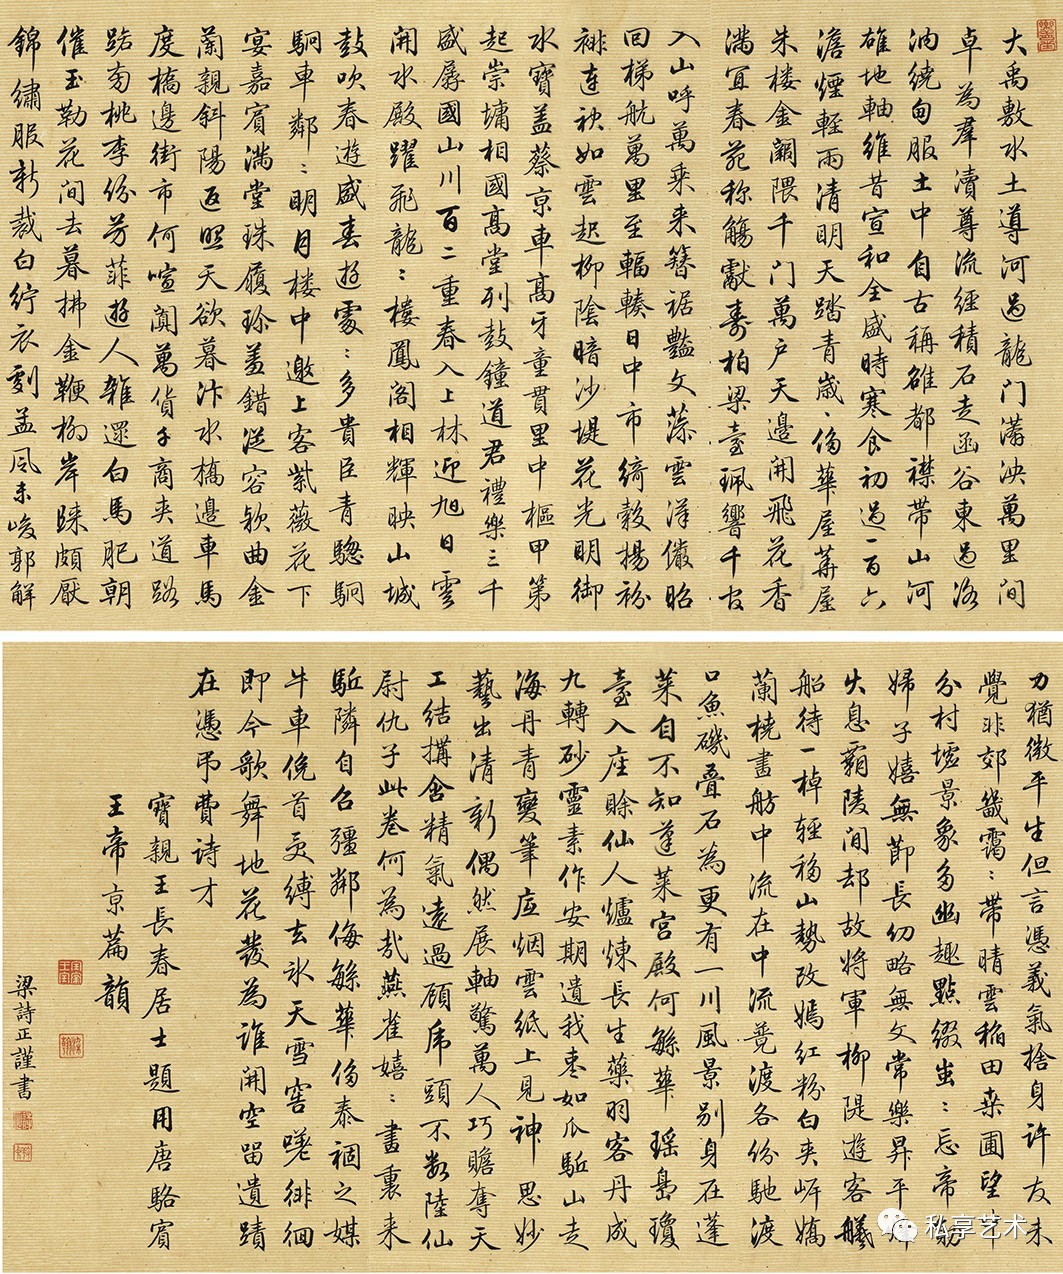 大禹敷水土導河過龍門滿泱萬里間
卓為羣瀆尊流經積石走函谷東過洛
汭繞甸服土中自古稱雒都襟帶山河
雄地軸維昔宣和全盛時寒食初過一百六
澹煙輕雨清明天踏青歲〻侈華屋華屋
朱樓金闕隈千門萬户天邊開飛花香
滿宜春苑称觴獻壽柏梁臺珮響千官
入山呼萬乘来簪裾豔文藻雲漢儼昭
回梯航萬里至輻輳日中市綺縠揚衯
裶連袂如雲起柳陰暗沙堤花光明御
水寶蓋蔡京車高牙童貫里中樞甲第
起崇墉相國高堂列鼓鐘道君禮樂三千
盛孱國山川百二重春入上林迎旭日雲
開水殿躍飛龍〻樓鳳閣相輝映山城
鼓吹春遊盛春遊處〻多貴臣青驄駉
駉車鄰〻明月樓中邀上客紫薇花下
宴嘉賓滿堂珠履珍羞錯從容款曲金
蘭親斜陽返照天欲暮汴水橋邊車馬
度橋邊街市何喧闐萬貨千商夾道路
路旁桃李份芳菲遊人雜還白馬肥朝
催玉勒花間去暮拂金鞭柳岸歸頗厭
錦繡服新裁白紵衣劉孟風未峻郭解
刀猶微平生但言憑義氣捨身許友未
覺非郊畿靄〻帶晴雲稲田桒圃望中
分村墟景象多幽趣點綴蚩〻忘帝勛
婦子嬉無節長幼略無文常樂昇平
火息霸陵間却故將軍柳隄遊客艤
船待一棹輕移山勢改嫣紅粉白夾岸嬌
蘭橈畫舫中流在中流竟渡各份馳渡
口魚磯疊石為更有一川風景别身在蓬
萊自不知蓬萊宮殿何緐華瑶島瓊
臺入座賒仙人爐煉長生藥羽客丹成
九轉砂靈素作安期遺我枣如瓜駈山走
海丹青變筆底烟雲紙上見神思妙
藝出清新偶然展軸驚萬人巧瞻奪天
工結搆含精氣遠過顧虎頭不數陸仙
尉仇子此卷何為哉燕雀嬉〻畫裏来
駈隣自召疆鄰侮緐華侈泰禍之媒
牛車俛首受縛去氷天雪窖嗟徘徊
即今歌舞地花發為誰開空留遺蹟
在憑弔費詩才
寶親王長春居士題用唐駱賓
王帝京篇韻
梁詩正謹書
私享艺术